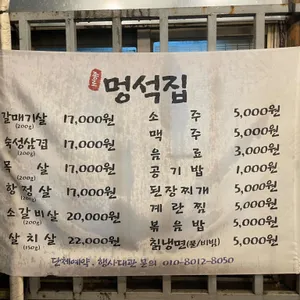 멍석집
갈매기살 17,000원
(200g)
숙성삼겹 17,000원
(200g)
목살 17,000원
(200g)
항정살 17,000원
(200g)
소갈비살 20,000원
(200g)
살치살 22,000원
(150g)
소주 5,000원
맥주 5,000원
음료 3,000원
공기밥 1,000원
된장찌개 5,000원
계란찜 5,000원
볶음밥 5,000원
칡냉면(물/비빔) 5,000원
단체예약, 행사대관 문의 010-8012-8050